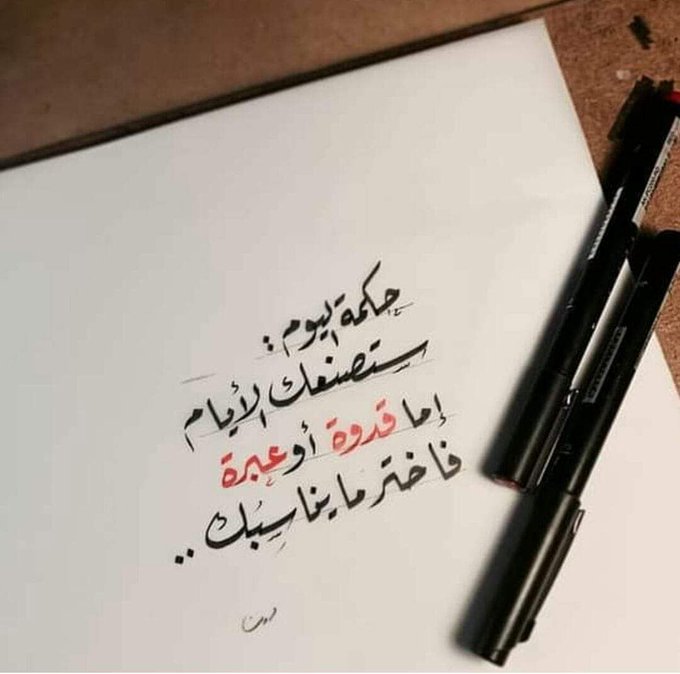 حكمة اليوم :
ستصنعك الأيام
إما قدوة أو عبرة
فاختر ما يناسبك ..